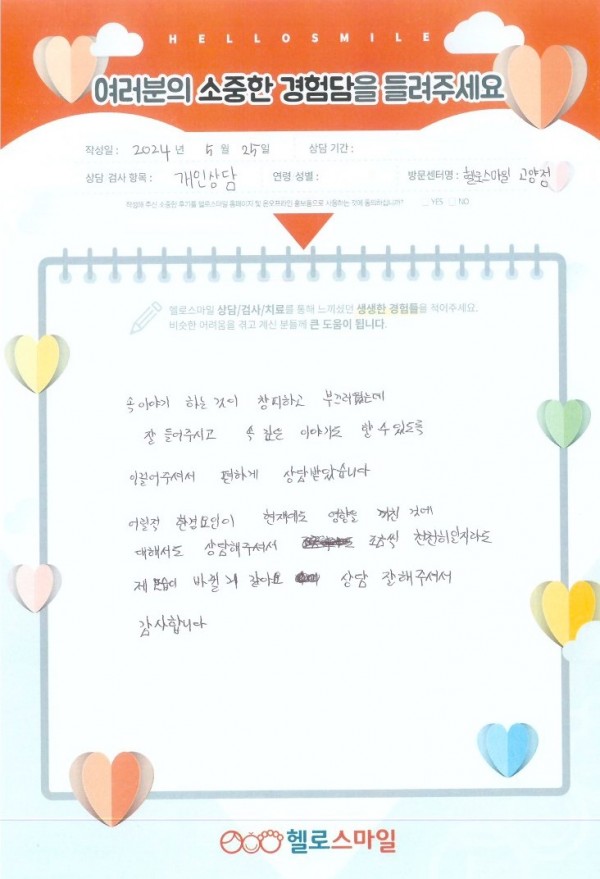 HELLOSMILE
여러분의 소중한 경험담을 들려주세요
작성일 : 2024 년 5 월 25일 상담 기간 :
상담 검사 항목 : 개인상담 연령 성별 : 방문센터명 : 헬로스마일 고양점
작성해 주신 소중한 후기를 헬로스마일 홈페이지 및 온오프라인 홍보용으로 사용하는 것에 동의하십니까? YES NO
헬로스마일 상담/검사/치료를 통해 느끼셨던 생생한 경험들을 적어주세요.
비슷한 어려움을 겪고 계신 분들께 큰 도움이 됩니다.
속이야기 하는 것이 창피하고 부끄러웠는데
잘 들어주시고 속 깊은 이야기도 할 수 있도록
이끌어주셔서 편하게 상담받았습니다
어릴적 환경요인이 현재에도 영향을 끼친 것에
대해서도 상담해주셔서 조금씩 천천히일지라도
제 모습이 바뀔 거 같아요 상담 잘해주셔서
감사합니다
헬로스마일